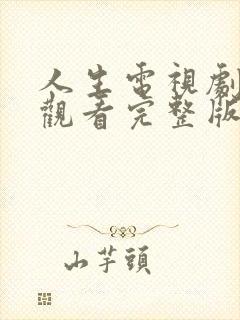 人生電視劇
觀看完整版
山芋頭